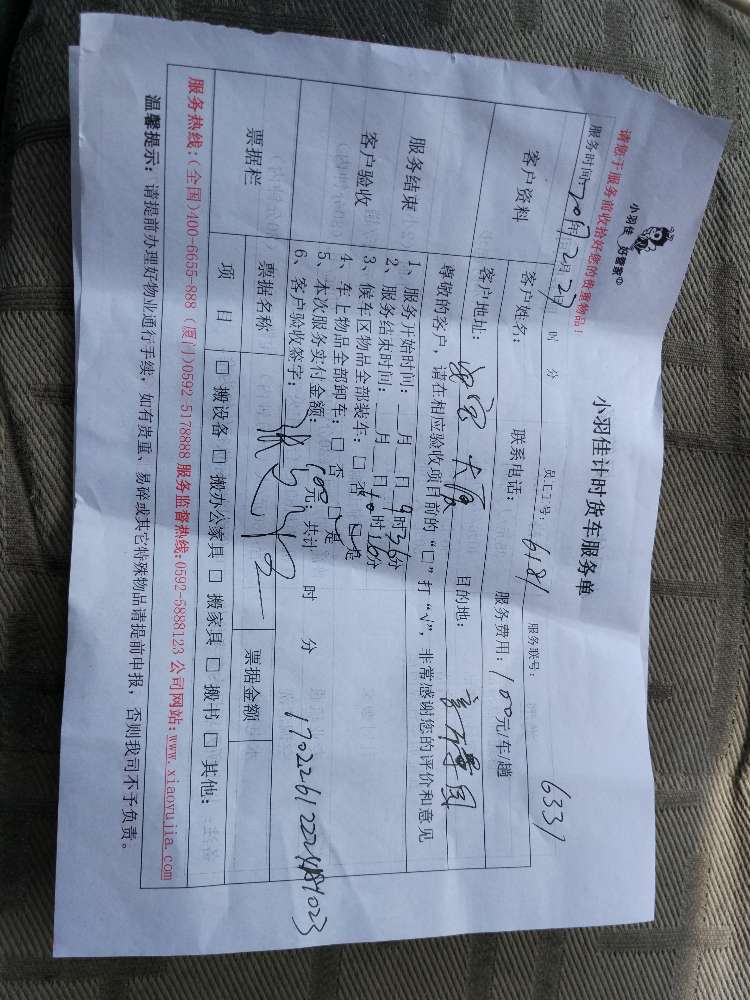 小羽佳 好管家
小羽佳计时货车服务单
请您于服务前收拾好您的贵重物品！
员工工号：6181 服务联号：6331
服务时间：2017年2月27日 时 分
客户资料
客户姓名： 联系电话： 服务费用：100元/车/趟
客户地址： 大厦 目的地：
尊敬的客户，请在相应验收项目前的“□”打“√”，非常感谢您的评价和意见
服务结束
客户验收
1、服务开始时间：__月__日9时36分
2、服务结束时间：__月__日10时16分
3、候车区物品全部装车：□ 否 □ 是
4、车上物品全部卸车：□ 否 □ 是
5、本次服务实付金额：100元；共计 时 分
6、客户验收签字：
票据栏
票据名称 票据金额
项 目 □ 搬设备 □ 搬办公家具 □ 搬家具 □ 搬书 □ 其他：
服务热线：(全国)400-6655-888 (厦门)0592-5178888 服务监督热线:0592-5888123 公司网站:www.xiaoyujia.com
温馨提示：请提前办理好物业通行手续，如有贵重、易碎或其它特殊物品请提前申报，否则我司不予负责。